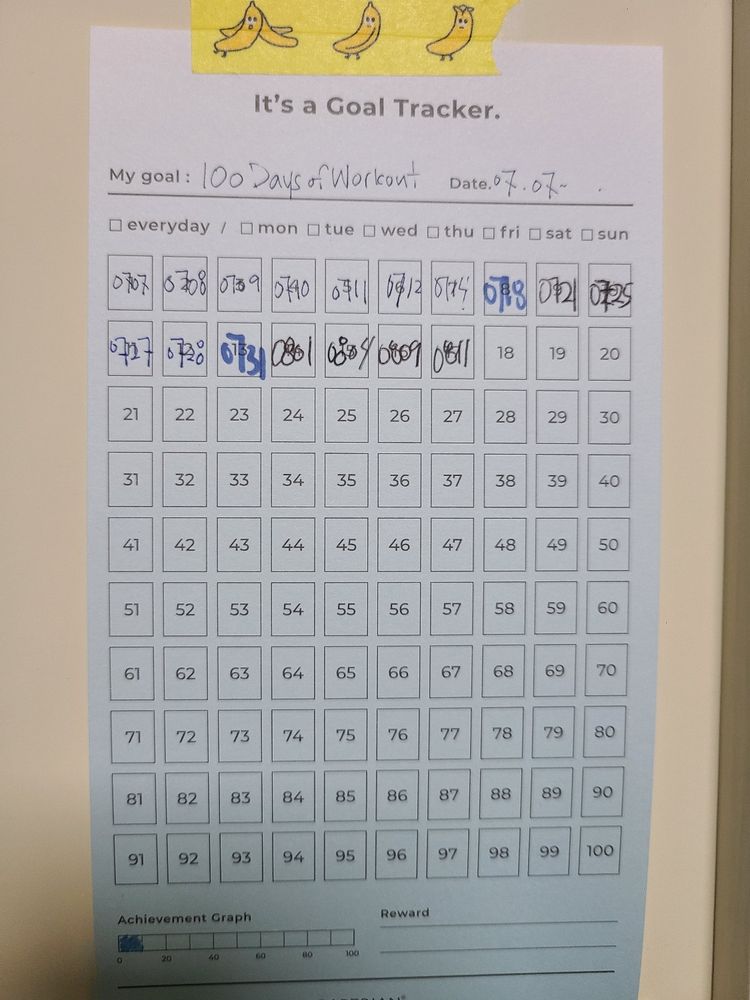 It's a Goal Tracker.
My goal : 100 Days of Workout Date. 07.07~ .
everyday / mon tue wed thu fri sat sun
0707 0708 0709 0710 0711 0712 0714 0718 0721 0725
0727 0728 0731 0801 0804 0809 0811 18 19 20
21 22 23 24 25 26 27 28 29 30
31 32 33 34 35 36 37 38 39 40
41 42 43 44 45 46 47 48 49 50
51 52 53 54 55 56 57 58 59 60
61 62 63 64 65 66 67 68 69 70
71 72 73 74 75 76 77 78 79 80
81 82 83 84 85 86 87 88 89 90
91 92 93 94 95 96 97 98 99 100
Achievement Graph Reward
0 20 40 60 80 100